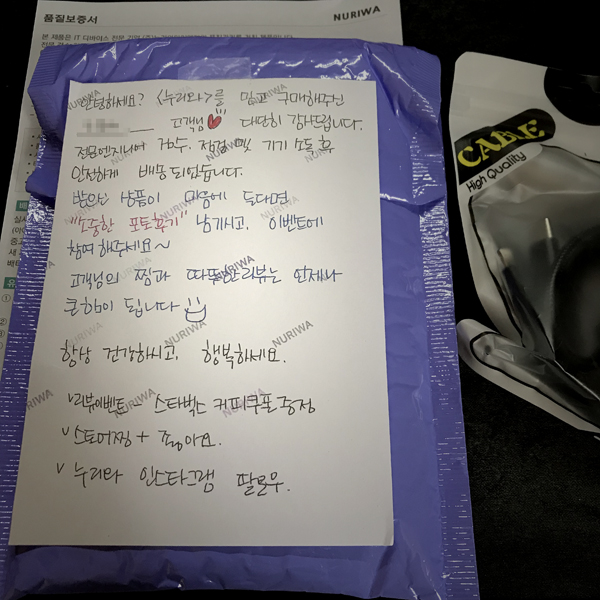 품질보증서
NURIWA
안녕하세요? <누리와>를 믿고 구매해주신
고객님 대단히 감사드립니다.
전문엔지니어 검수. 점검 및 기기 노트 후
안전하게 배송되었습니다.
받으신 상품이 마음에 드다면
"소중한 포토후기" 남기시고, 이벤트에
참여해주세요~
고객님의 찜과 따뜻한 리뷰는 언제나
큰 힘이 됩니다
항상 건강하시고, 행복하세요.
v 리뷰이벤트 - 스타벅스 커피쿠폰 증정
v 스토어찜 + 좋아요.
v 누리와 인스타그램 팔로우.
CABLE
High Quality